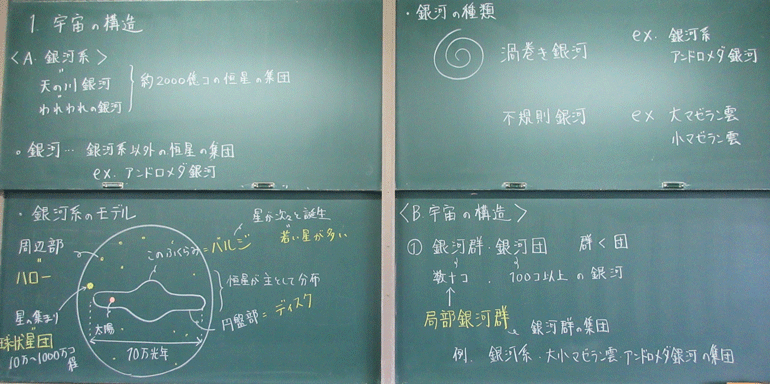 1. 宇宙の構造
<A. 銀河系>
天の川銀河
われわれの銀河
約2000億コの恒星の集団
。銀河… 銀河系以外の恒星の集団
ex. アンドロメダ銀河
・銀河の種類
渦巻き銀河 ex. 銀河系
アンドロメダ銀河
不規則銀河 ex 大マゼラン雲
小マゼラン雲
・銀河系のモデル
星が次々と誕生
このふくらみ=バルジ 若い星が多い
周辺部
ハロー
恒星が主として分布
星の集まり
太陽
円盤部=ディスク
球状星団
10万光年
10万~1000万コ程
<B. 宇宙の構造>
① 銀河群・銀河団 群く団
数十コ 、100コ以上 の銀河
局部銀河群 銀河群の集団
例. 銀河系・大小マゼラン雲・アンドロメダ銀河の集団